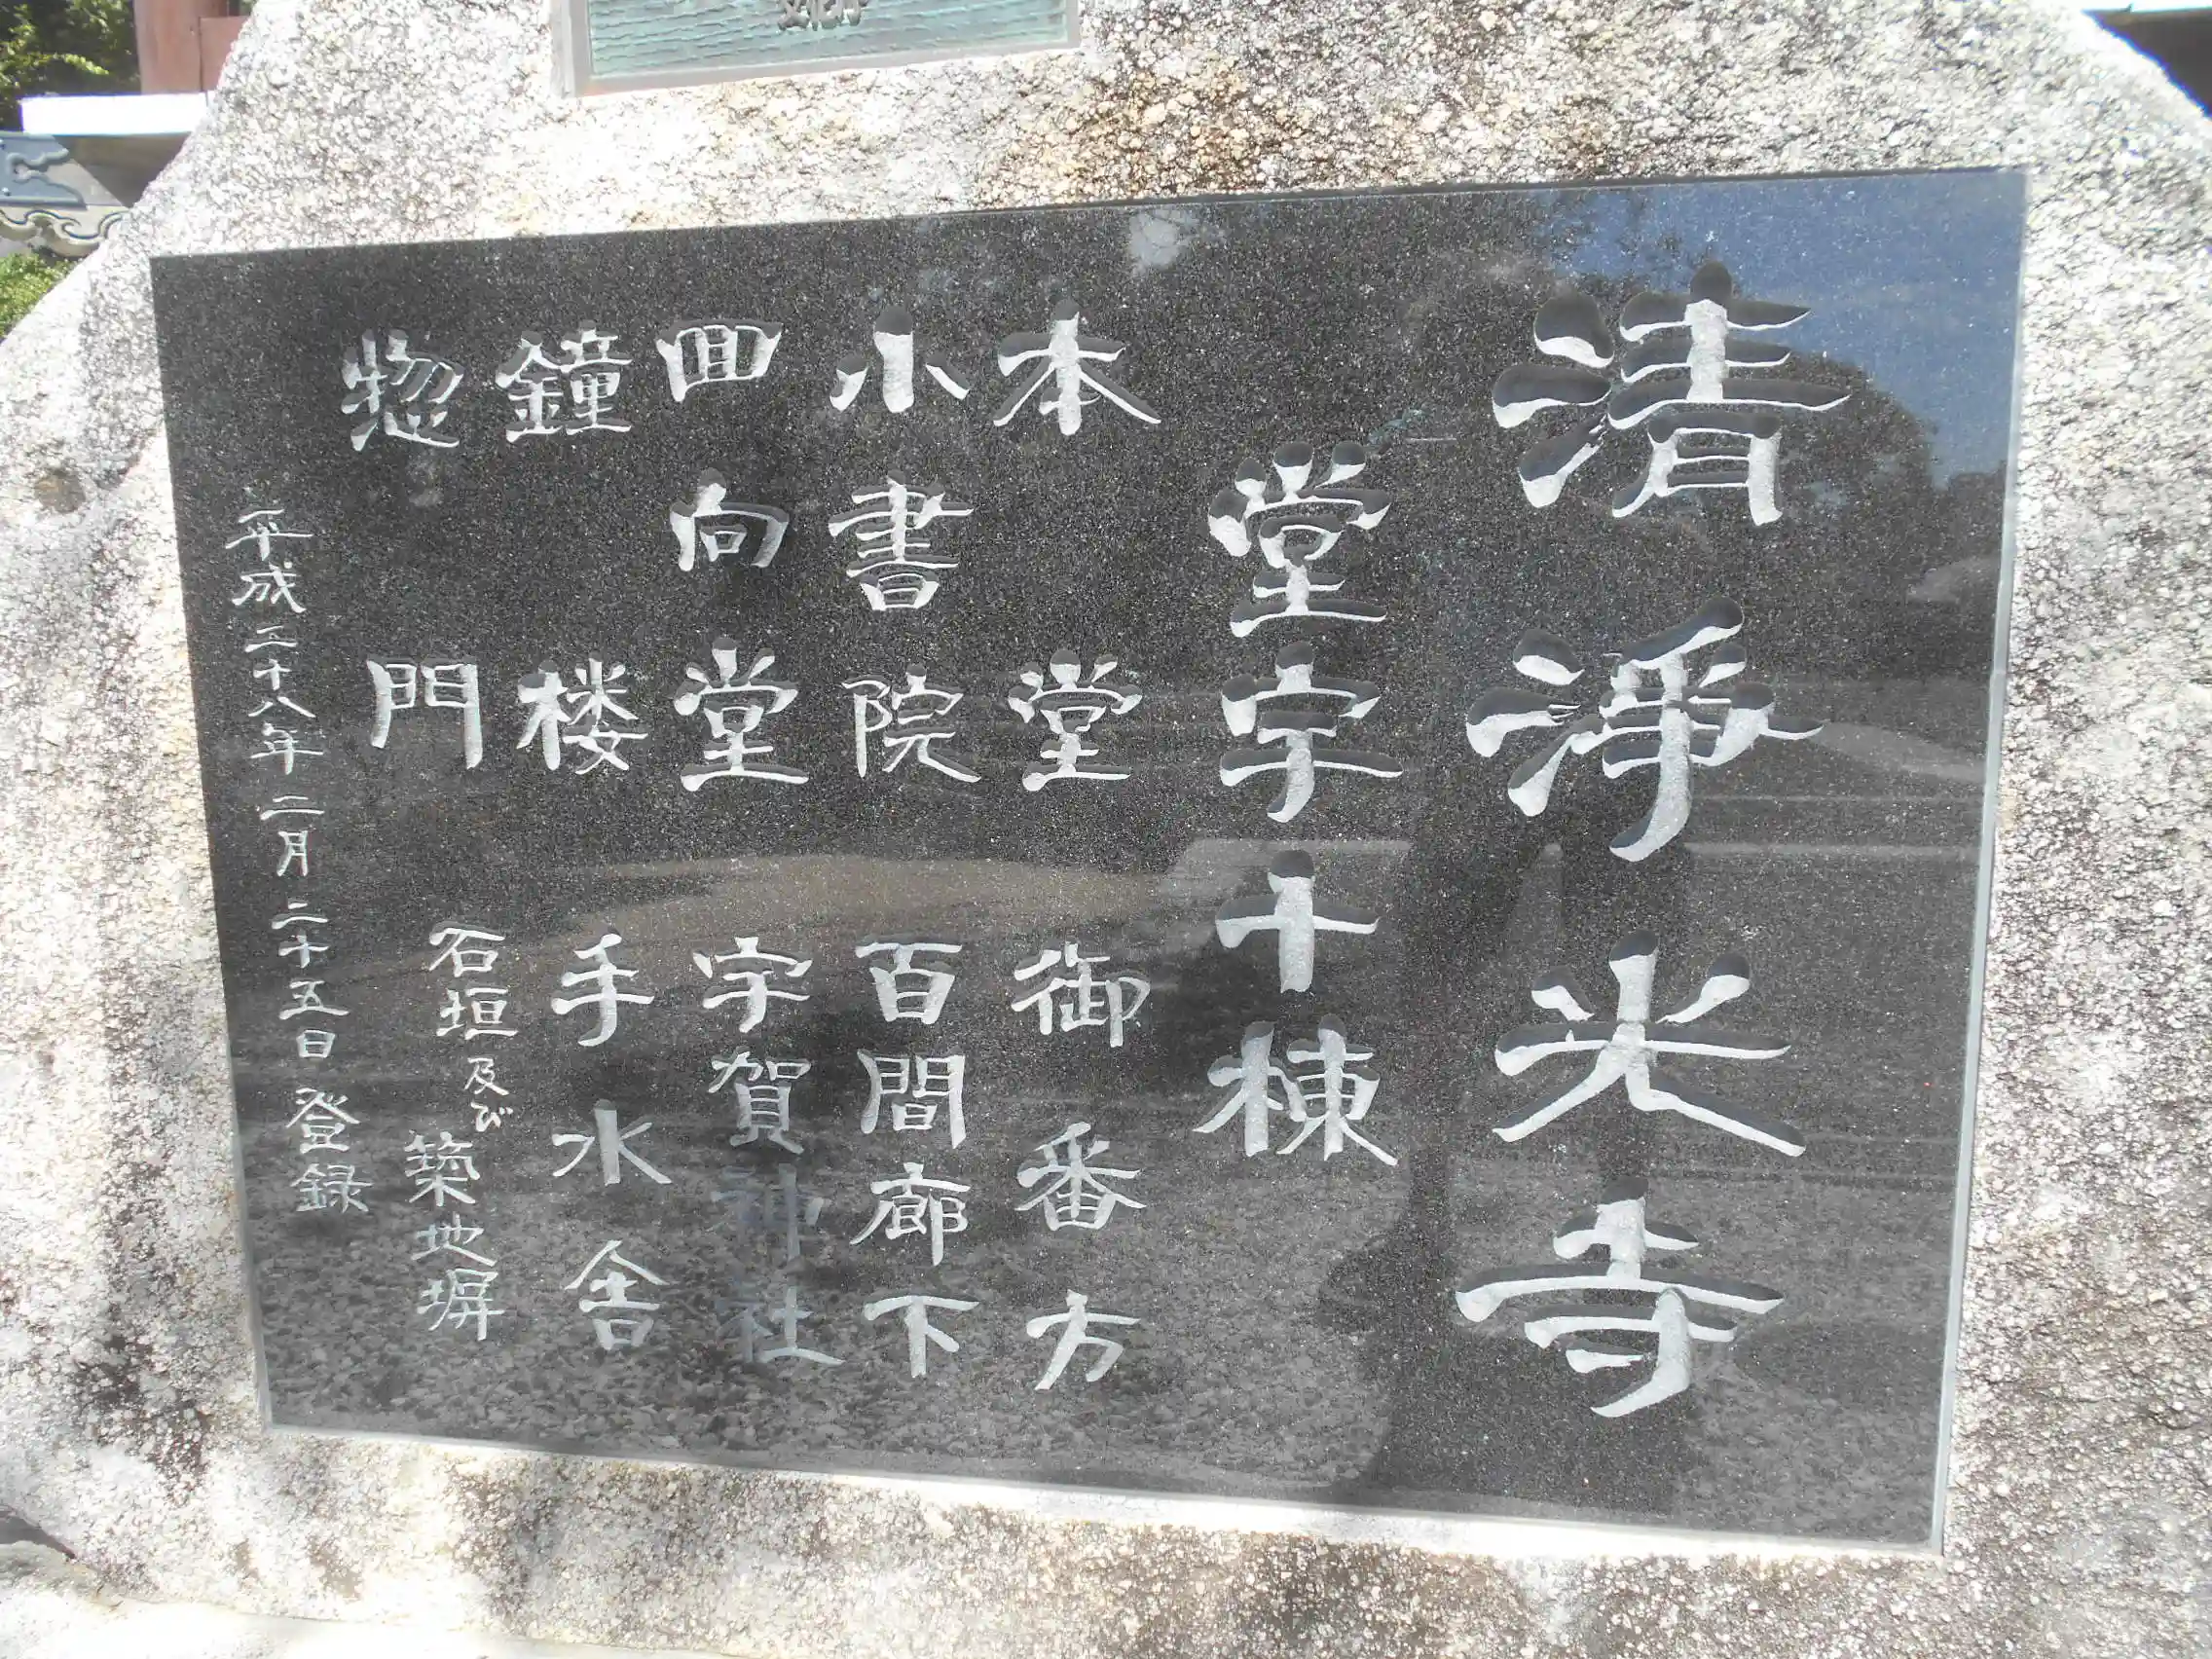 清浄光寺
堂宇十棟
本堂 御番方
小書院 百間廊下
回向堂 宇賀神社
鐘楼 手水舎
惣門 石垣及び築地塀
平成二十八年二月二十五日登録